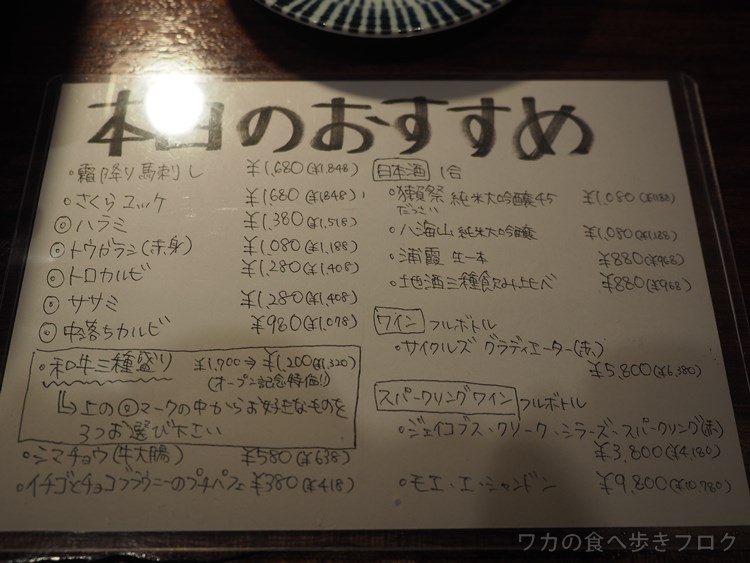 本日のおすすめ
・霜降り馬刺し ¥1,680(¥1,848)
・さくらユッケ ¥1,680(¥1,848)
◎ハラミ ¥1,380(¥1,518)
◎トウガラシ(赤身) ¥1,080(¥1,188)
◎トロカルビ ¥1,280(¥1,408)
◎ササミ ¥1,280(¥1,408)
◎中落ちカルビ ¥980(¥1,078)
・和牛三種盛り ¥1,700→¥1,200(¥1,320)
(オープン記念特価!)
上の◎マークの中からお好きなものを
3つお選び下さい
・シマチョウ(牛大腸) ¥580(¥638)
・イチゴとチョコブラウニーのプチパフェ ¥380(¥418)
日本酒 1合
・獺祭 純米大吟醸45 ¥1,080(¥1,188)
だっさい
・八海山 純米大吟醸 ¥1,080(¥1,188)
・浦霞 生一本 ¥880(¥968)
・地酒三種飲み比べ ¥880(¥968)
ワイン フルボトル
・サイクルズ グラディエーター(赤)
¥5,800(¥6,380)
スパークリングワイン フルボトル
・ジェイコブス・クリーク・シラーズ・スパークリング(赤)
¥3,800(¥4,180)
・モエ・エ・シャンドン ¥9,800(¥10,780)
ワカの食べ歩きブログ